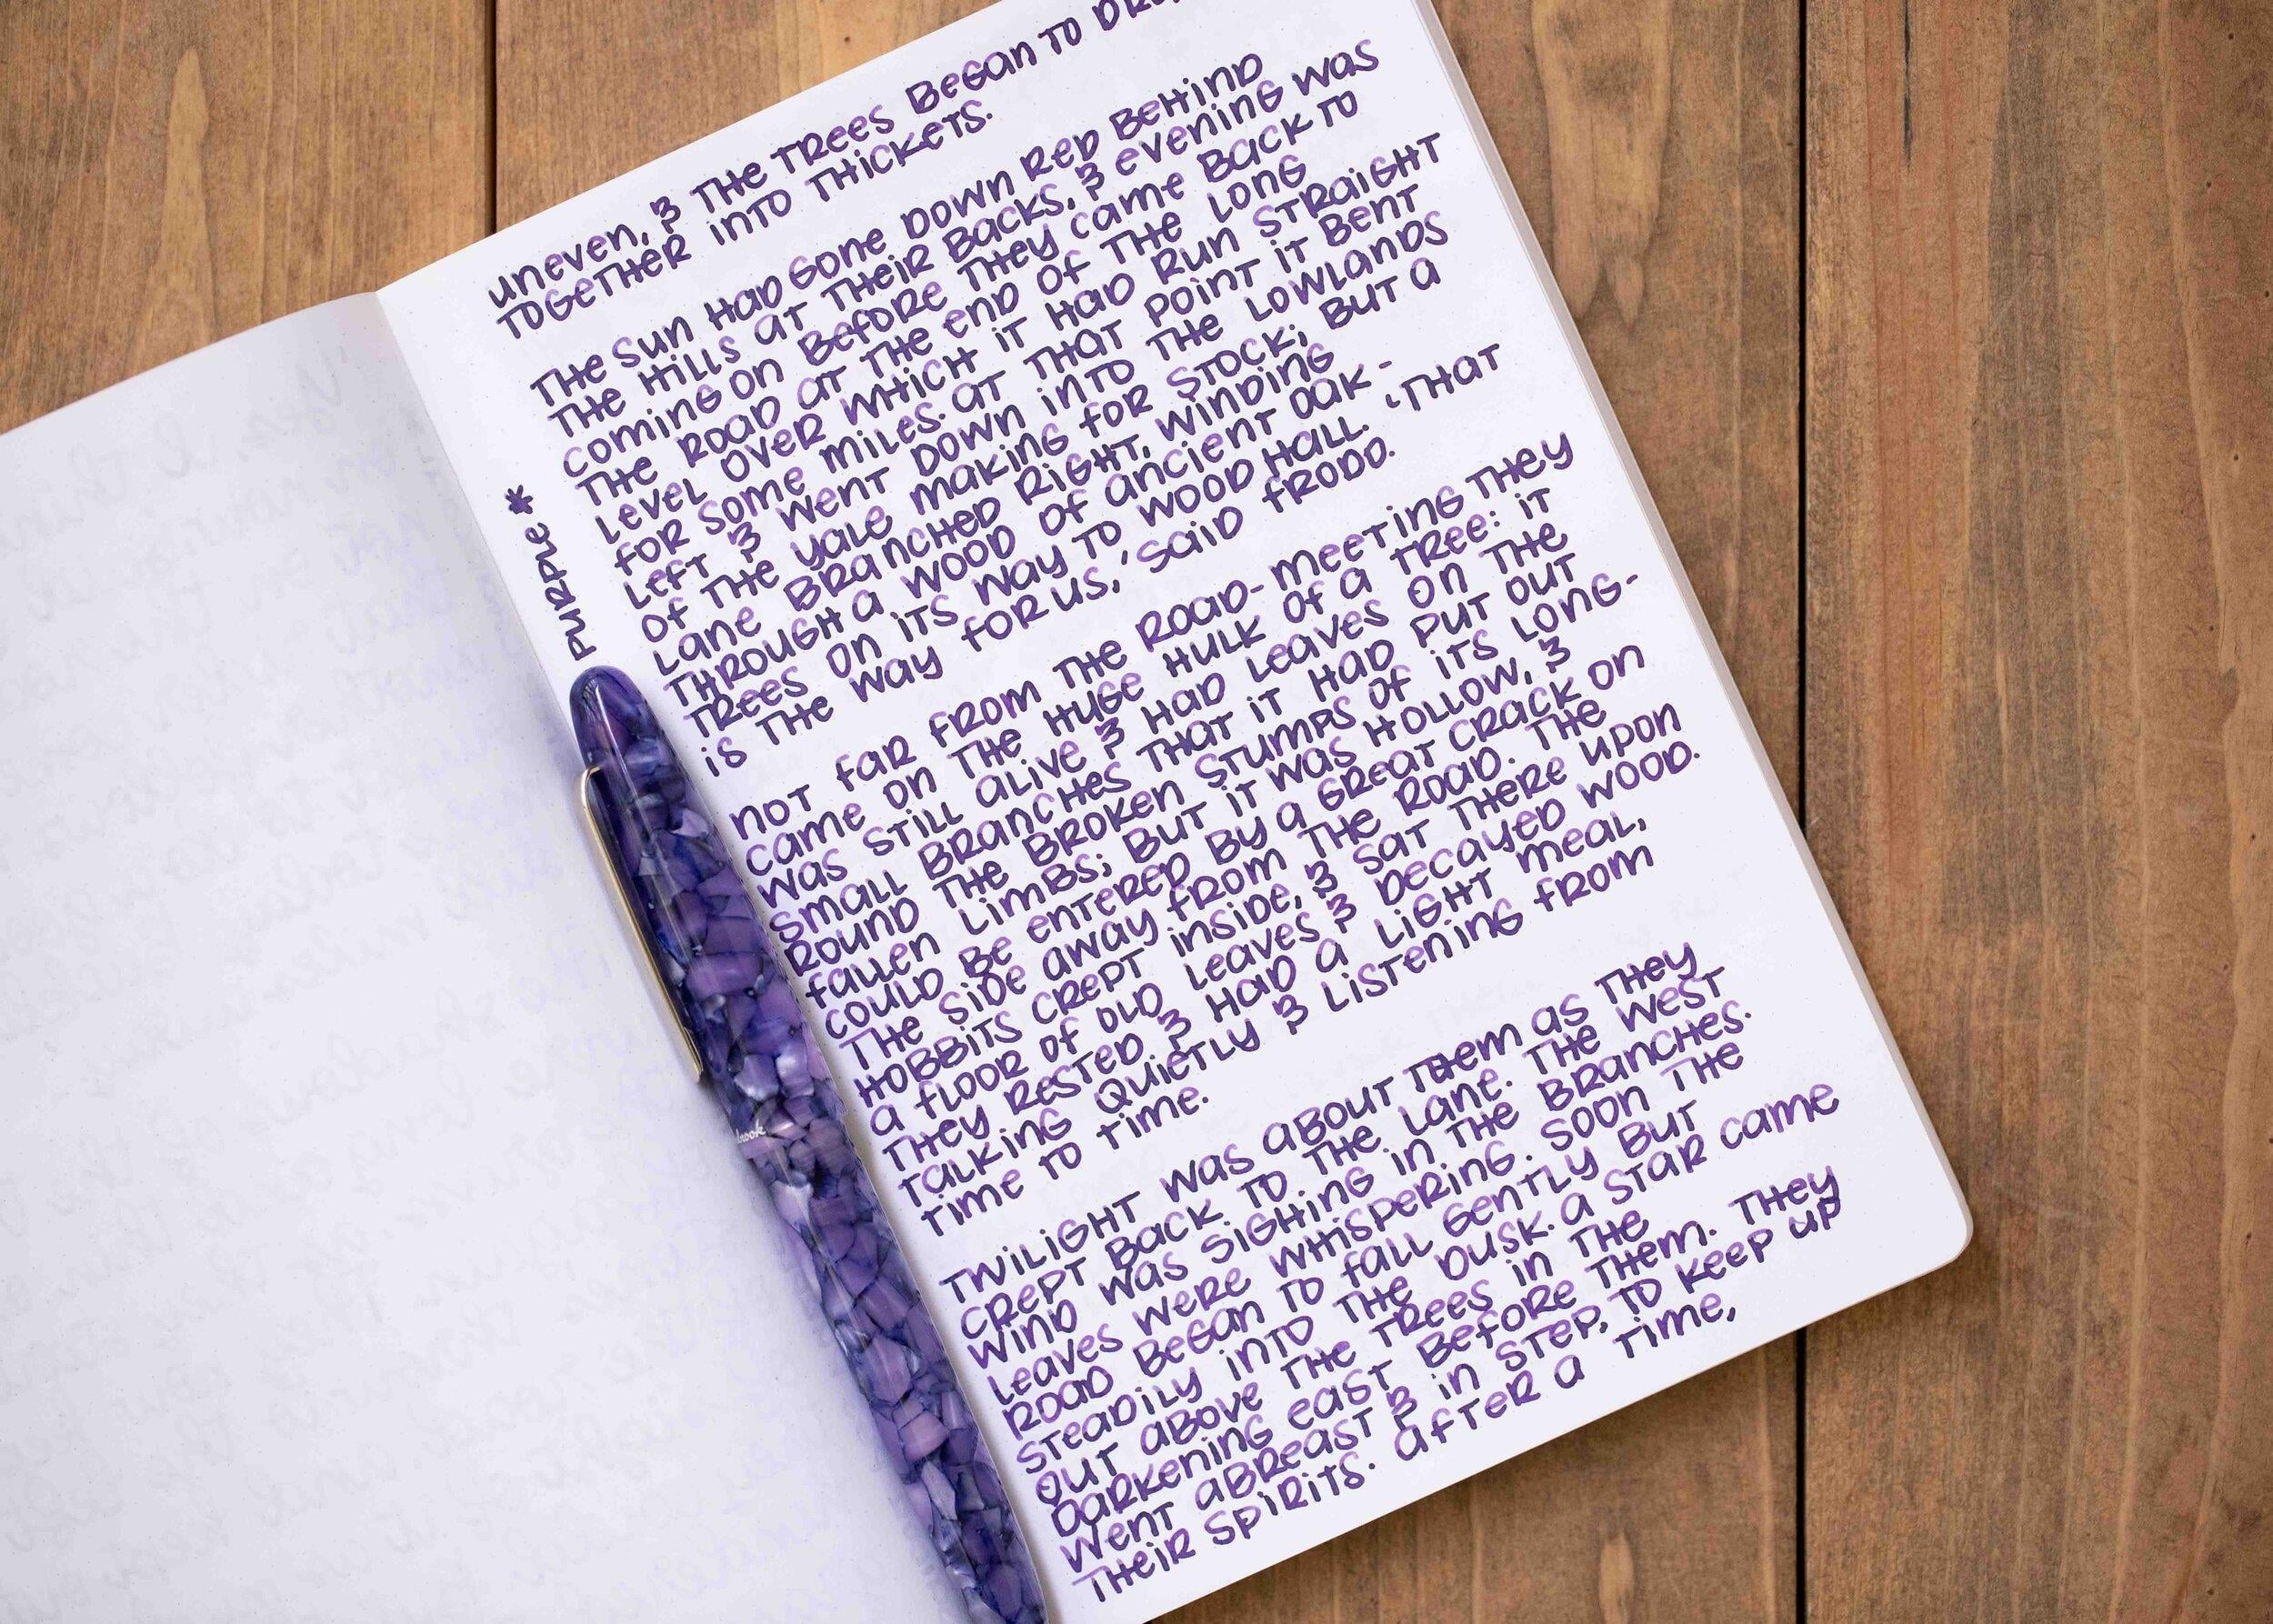 uneven, & THE TREES BEGAN TO
TOGETHER INTO THICKETS.
THE SUN HAD GONE DOWN RED BEHIND
THE HILLS AT THEIR BACKS, & EVENING WAS
COMING ON BEFORE THEY CAME BACK TO
THE ROAD AT THE END OF THE LONG
LEVEL OVER WHICH IT HAD RUN STRAIGHT
FOR SOME MILES. AT THAT POINT IT BENT
LEFT & WENT DOWN INTO THE LOWLANDS
OF THE YALE MAKING FOR STOCK; BUT A
LANE BRANCHED RIGHT, WINDING
THROUGH A WOOD OF ANCIENT OAK-
TREES ON ITS WAY TO WOOD HALL. 'THAT
IS THE WAY FOR US,' SAID FRODO.
NOT FAR FROM THE ROAD-MEETING THEY
CAME ON THE HUGE HULK OF A TREE: IT
WAS STILL ALIVE & HAD LEAVES ON THE
SMALL BRANCHES THAT IT HAD PUT OUT
ROUND THE BROKEN STUMPS OF ITS LONG-
FALLEN LIMBS; BUT IT WAS HOLLOW, &
COULD BE ENTERED BY A GREAT CRACK ON
THE SIDE AWAY FROM THE ROAD. THE
HOBBITS CREPT INSIDE, & SAT THERE UPON
A FLOOR OF OLD LEAVES & DECAYED WOOD.
THEY RESTED & HAD A LIGHT MEAL,
TALKING QUIETLY & LISTENING FROM
TIME TO TIME.
TWILIGHT WAS ABOUT THEM AS THEY
CREPT BACK TO THE LANE. THE WEST
WIND WAS SIGHING IN THE BRANCHES.
LEAVES WERE WHISPERING. SOON THE
ROAD BEGAN TO FALL GENTLY BUT
STEADILY INTO THE DUSK. A STAR CAME
OUT ABOVE THE TREES IN THE
DARKENING EAST BEFORE THEM. THEY
WENT ABREAST & IN STEP, TO KEEP UP
THEIR SPIRITS. AFTER A TIME,
PURPLE *